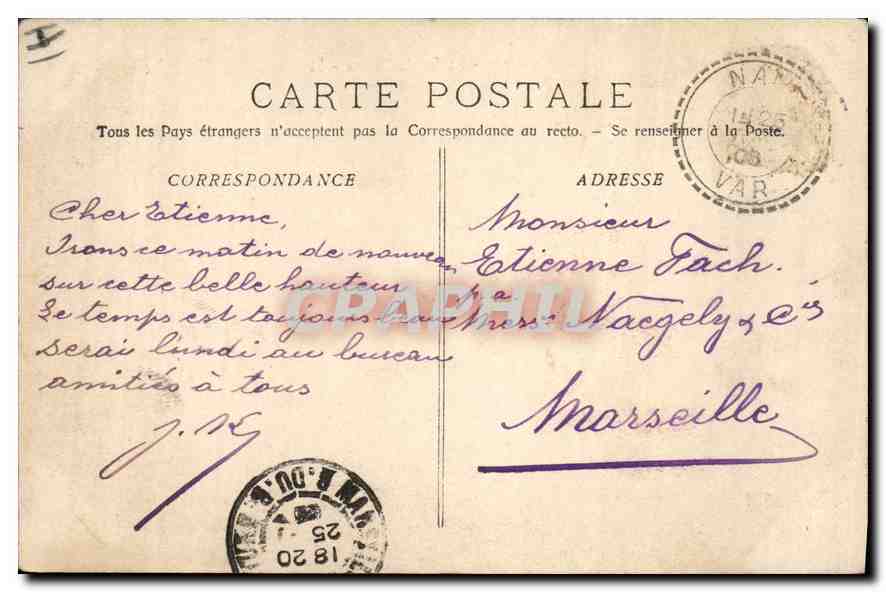 CARTE POSTALE
Tous les Pays étrangers n'acceptent pas la Correspondance au recto. - Se renseigner à la Poste.
CORRESPONDANCE
Cher Etienne,
Irons ce matin de nouveau
sur cette belle hauteur
Le temps est toujours beau
serai lundi au bureau
amitiés à tous
J. K
ADRESSE
Monsieur
Etienne Fach.
Mess. Naegely & Cie
Marseille
NAN
VAR
25
08
18 20
25
R. DU
CPAPHIL